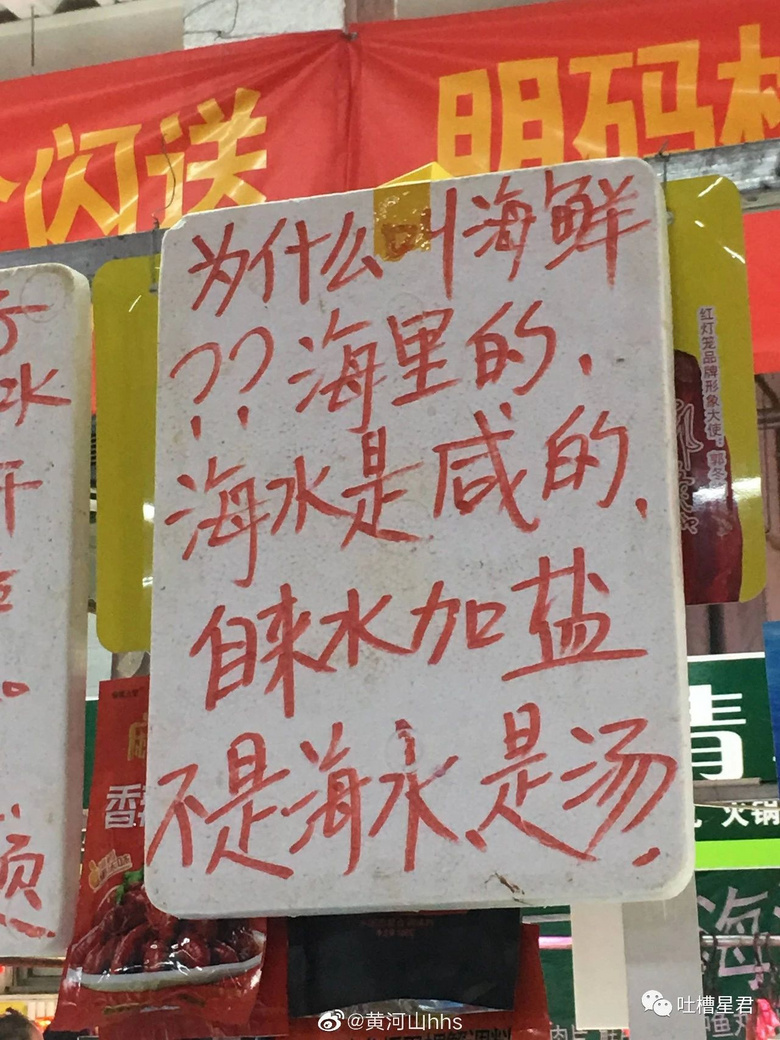 闪送 明码
为什么叫海鲜
??海里的,
海水是咸的,
自来水加盐
不是海水,是汤.
水
开
红灯笼品牌形象大使:郭冬
香
青
火锅
海
鱼丸
@黄河山hhs
吐槽星君